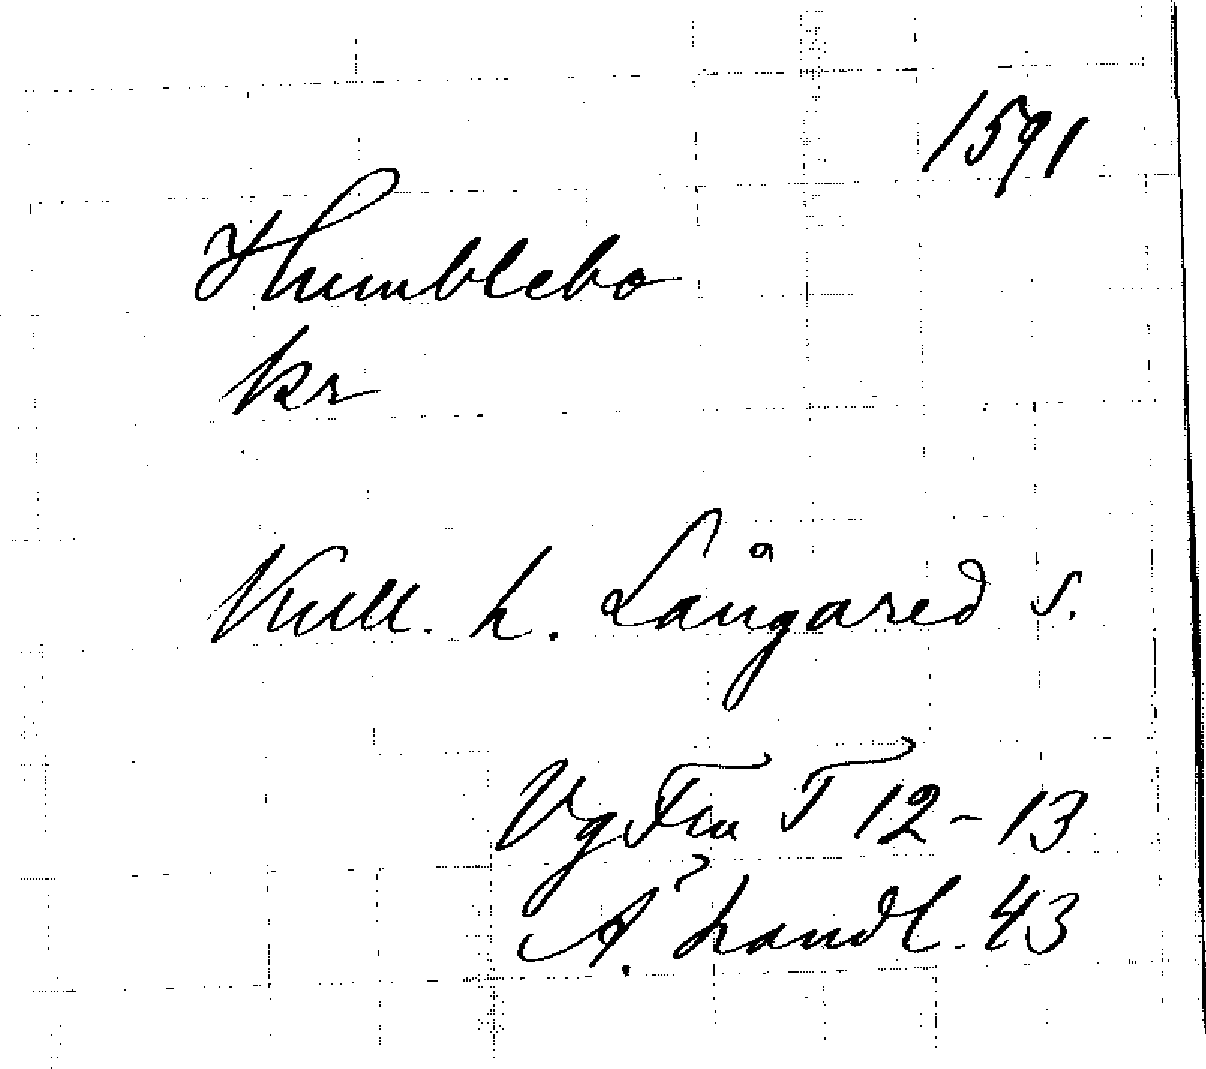 1591
Humblebo
kr
Kull. h. Långared s.
Vg Fru T 12-13
Å. handl. 43